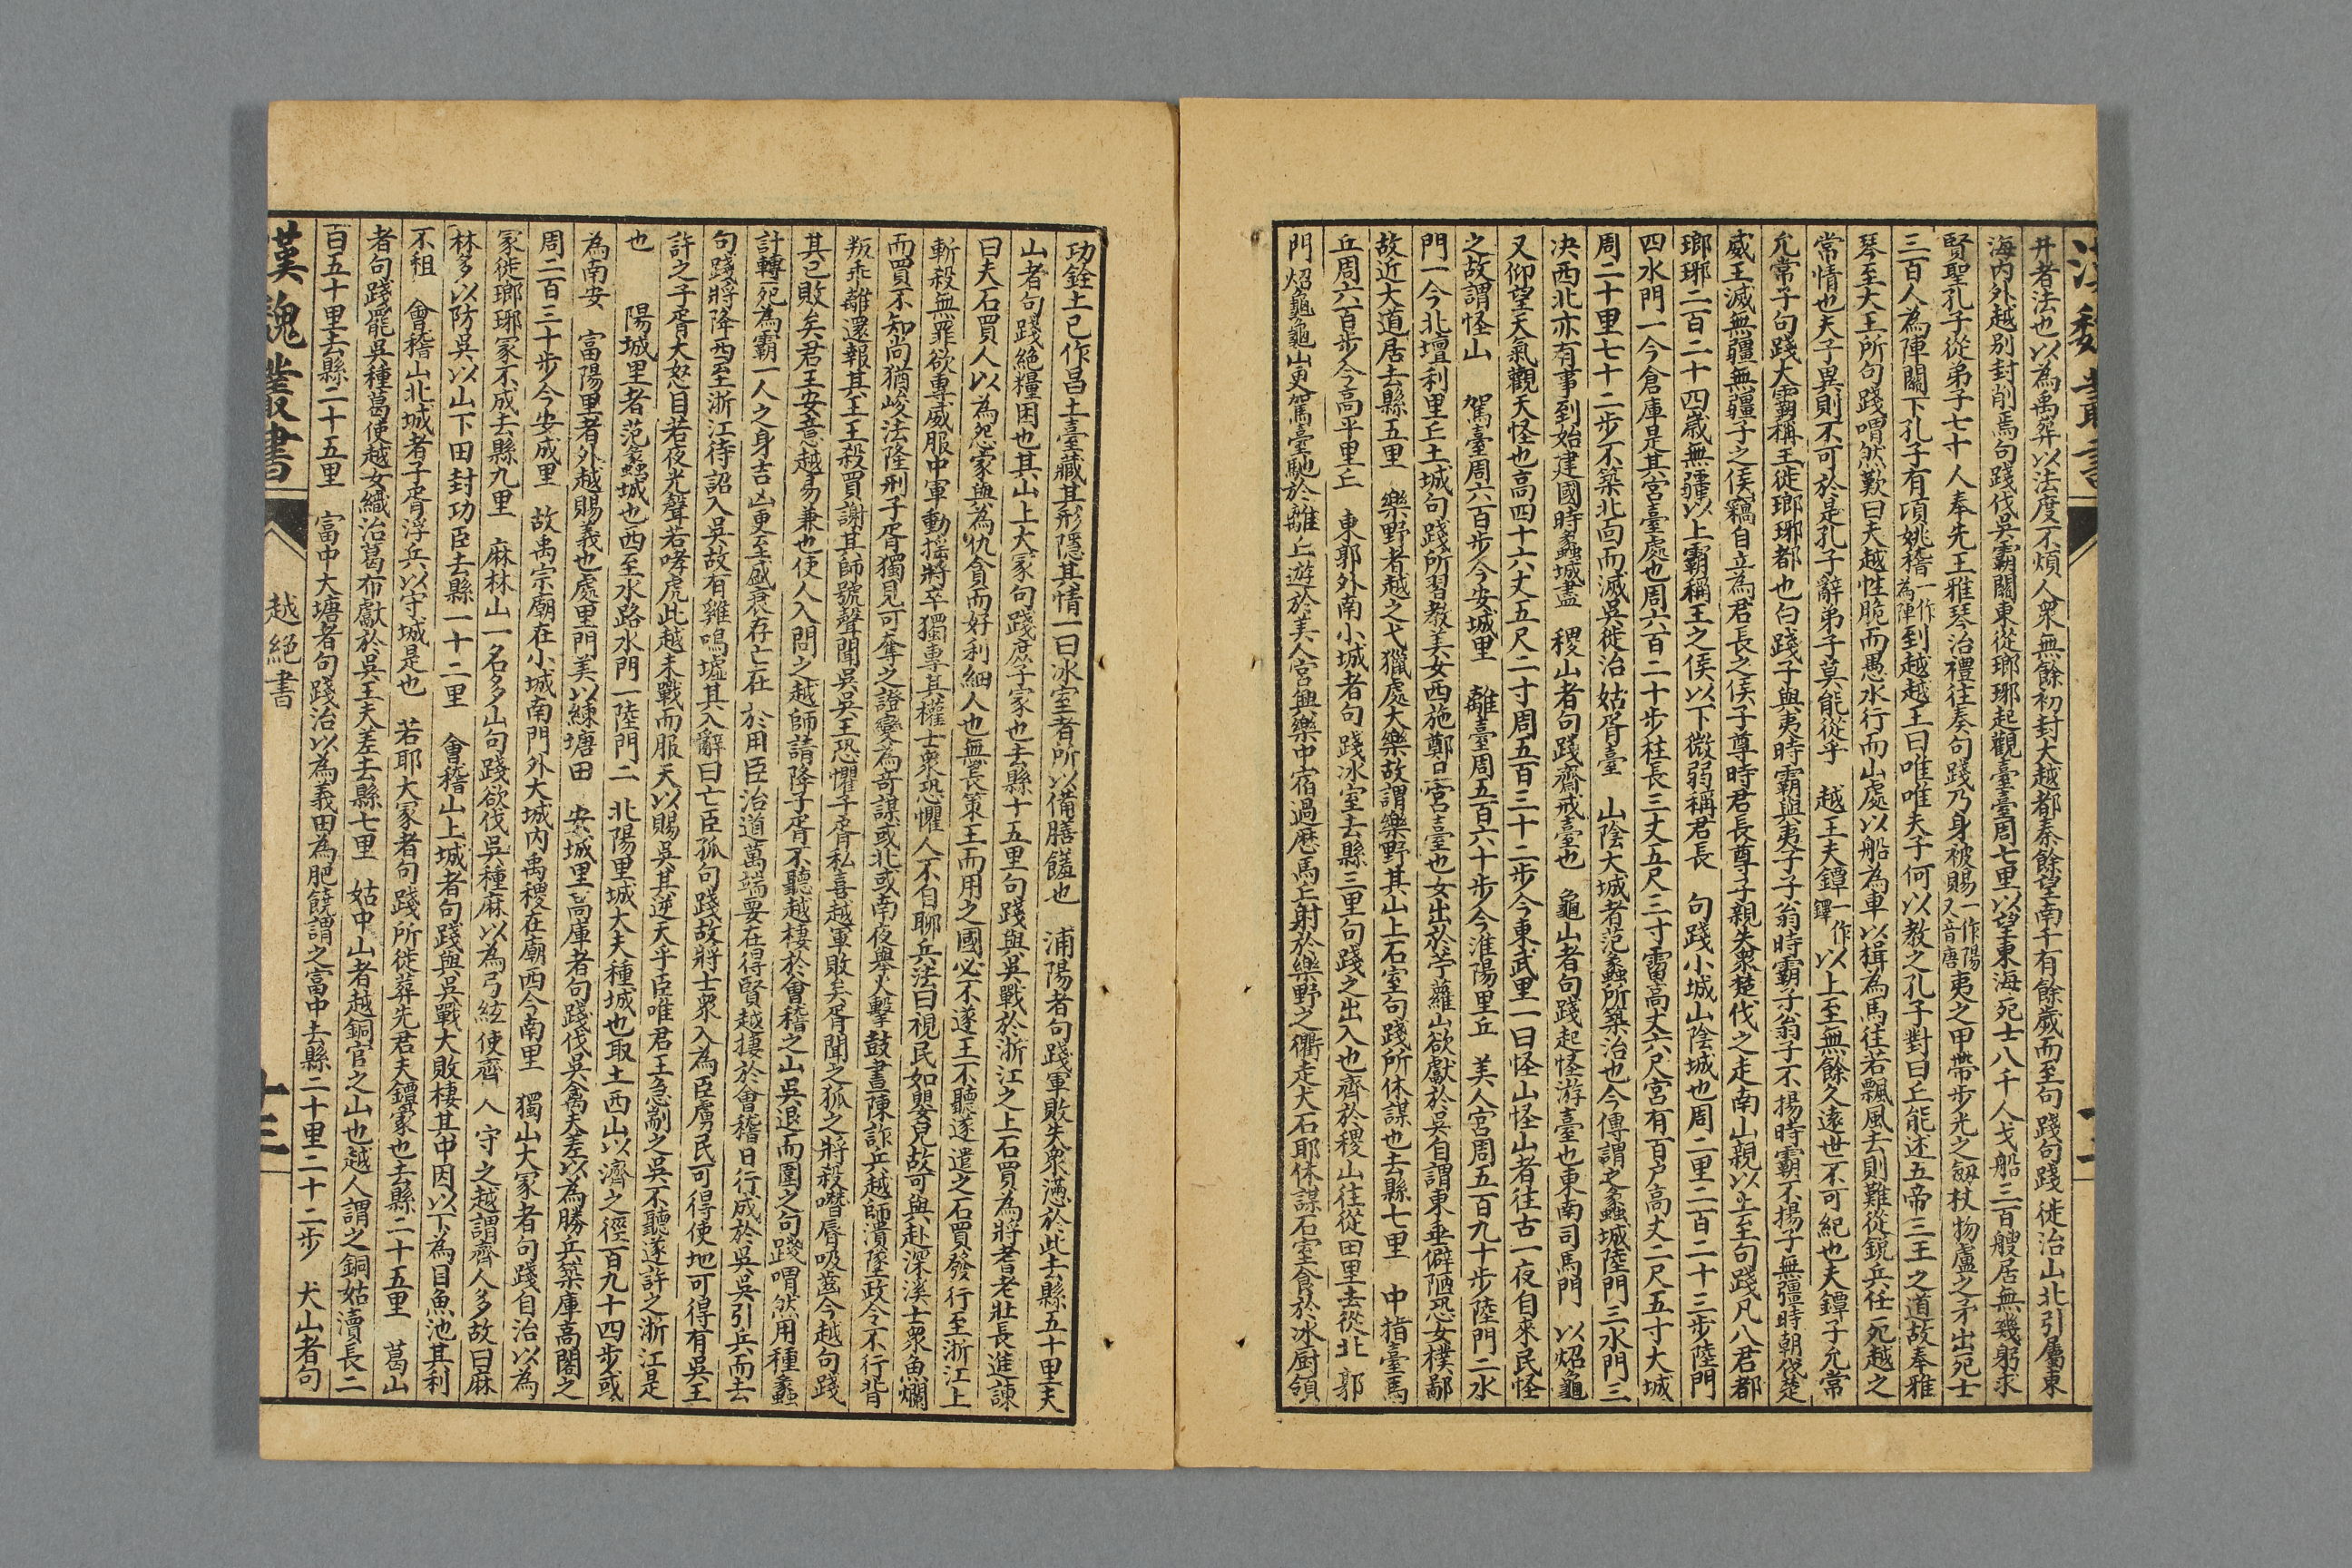 井者法也以為禹葬以法度不煩人衆無餘初封大越都秦餘望南千有餘歲而至句踐句踐徙治山北引屬東
海內外越别封削焉句踐伐吳霸關東從瑯琊起觀臺臺周七里以望東海死士八千人戈船三百艘居無幾躬求
賢聖孔子從弟子七十人奉先王雅琴治禮往奏句踐乃身被賜一作陽又音唐夷之甲帶步光之劔杖物盧之矛出死士
三百人為陣關下孔子有頃姚稽一作為陣到越越王曰唯唯夫子何以教之孔子對曰丘能述五帝三王之道故奉雅
琴至大王所句踐喟然歎曰夫越性脆而愚水行而山處以船為車以楫為馬往若飄風去則難從銳兵任死越之
常情也夫子異則不可於是孔子辭弟子莫能從乎　越王夫鐔一作鐸以上至無餘久遠世不可紀也夫鐔子允常
允常子句踐大霸稱王徙瑯琊都也句踐子與夷時霸與夷子子翁時霸子翁子不揚時霸不揚子無疆時朝伐楚
威王滅無疆無疆子之侯竊自立為君長之侯子尊時君長尊子親失衆楚伐之走南山親以上至句踐凡八君都
瑯琊二百二十四歲無疆以上霸稱王之侯以下微弱稱君長　句踐小城山陰城也周二里二百二十三步陸門
四水門一今倉庫是其宮臺處也周六百二十步柱長三丈五尺三寸霤高丈六尺宮有百户高丈二尺五寸大城
周二十里七十二步不築北面而滅吳徙治姑胥臺　山陰大城者范蠡所築治也今傳謂之蠡城陸門三水門三
决西北亦有事到始建國時蠡城盡　稷山者句踐齋戒臺也　龜山者句踐起怪游臺也東南司馬門　以炤龜
又仰望天氣觀天怪也高四十六丈五尺二寸周五百三十二步今東武里一曰怪山怪山者往古一夜自来民怪
之故謂怪山　駕臺周六百步今安城里　離臺周五百六十步今淮陽里丘　美人宮周五百九十步陸門二水
門一今北壇利里丘土城句踐所習教美女西施鄭旦宮臺也女出於苧蘿山欲獻於吳自謂東垂僻陋恐女樸鄙
故近大道居去縣五里　樂野者越之弋獵處大樂故謂樂野其山上石室句踐所休謀也去縣七里　中指臺馬
丘周六百步今高平里丘　東郭外南小城者句踐冰室去縣三里句踐之出入也齊於稷山往從田里去從北郭
門　炤龜龜山更駕臺馳於離丘遊於美人宮興樂中宿過歷馬丘射於樂野之衢走犬石耶休謀石室食於冰厨領
功銓土已作昌土臺藏其形隱其情一曰冰室者所以備膳饈也　浦陽者句踐軍敗失衆懣於此去縣五十里夫
山者句踐絕糧困也其山上大冢句踐庶子冢也去縣十五里句踐與吳戰於浙江之上石買為將耆老壯長進諫
曰夫石買人以為怨家與為仇貪而好利細人也無長策王而用之國必不遂王不聽遂遣之石買發行至浙江上
斬殺無罪欲專威服中軍動揺將卒獨專其權士衆恐懼人不自聊兵法曰視民如嬰兒故可與赴深溪士衆魚爛
而買不知尚猶峻法隆刑子胥獨見可奪之證變為奇謀或北或南夜舉火擊鼓晝陳詐兵越師潰墜政令不行背
叛乖離還報其王王殺買謝其師號聲聞吳吳王恐懼子胥私喜越軍敗矣胥聞之狐之將殺噆唇吸齒今越句踐
其已敗矣君王安意越易兼也使人入問之越師請降子胥不聽越棲於會稽之山吳退而圍之句踐喟然用種蠡
計轉死為霸一人之身吉凶更至盛衰存亡在　於用臣治道萬端要在得賢越棲於會稽日行成於吳吳引兵而去
句踐將降西至浙江待詔入吳故有雞鳴墟其入辭曰亡臣孤句踐故將士衆入為臣虜民可得使地可得有吳王
許之子胥大怒目若夜光聲若哮虎此越未戰而服天以賜吳其逆天乎臣唯君王急剬之吳不聽遂許之浙江是
也　陽城里者范蠡城也西至水路水門一陸門二　北陽里城大夫種城也取土西山以濟之徑百九十四步或
為南安　富陽里者外越賜義也處里門美以練塘田　安城里高庫者句踐伐吳禽夫差以為勝兵築庫高閣之
周二百三十步今安成里　故禹宗廟在小城南門外大城內禹稷在廟西今南里　獨山大冢者句踐自治以為
冢徙瑯琊冢不成去縣九里　麻林山一名多山句踐欲伐吳種麻以為弓絃使齊　人守之越謂齊人多故曰麻
林多以防吳以山下田封功臣去縣一十二里　會稽山上城者句踐與吳戰大敗棲其中因以下為目魚池其利
不租　會稽山北城者子胥浮兵以守城是也　若耶大冢者句踐所徙葬先君夫鐔冢也去縣二十五里　葛山
者句踐罷吳種葛使越女織治葛布獻於吳王夫差去縣七里　姑中山者越銅官之山也越人謂之銅姑瀆長二
百五十里去縣二十五里　富中大塘者句踐治以為義田為肥饒謂之富中去縣二十里二十二步　犬山者句
漢魏叢書　越絕書　十三